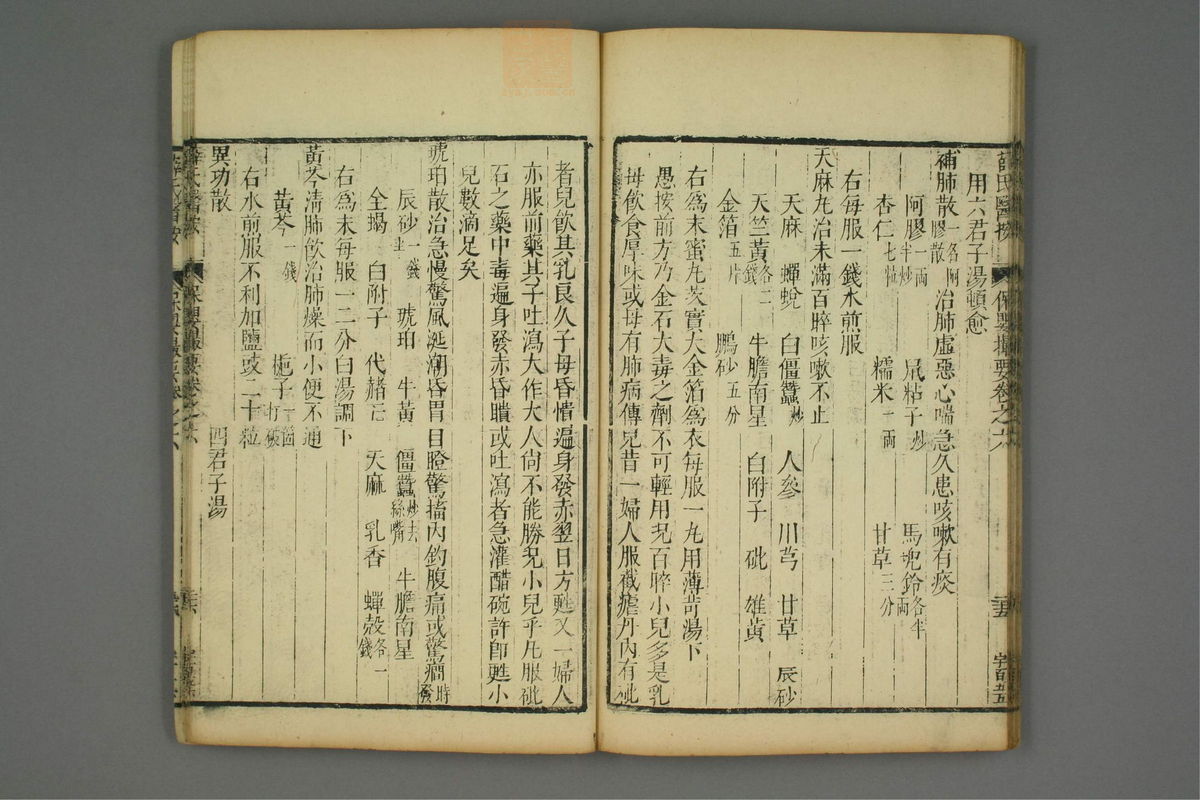 薛氏醫按 保嬰撮要卷之六
用六君子湯頓愈
補肺散一名阿膠散 治肺虛惡心喘急久患咳嗽有痰
阿膠一兩半炒 鼠粘子炒 馬兜鈴各半兩
杏仁七粒 糯米一兩 甘草三分
右每服一錢水煎服
天麻丸治未滿百晬咳嗽不止
天麻 蟬蛻 白僵蠶炒 人參 川芎 甘草 辰砂
天竺黃各二錢 牛膽南星 白附子 砒 雄黃
金箔五片 鵬砂五分
右為末蜜丸芡實大金箔為衣每服一丸用薄荷湯下
愚按前方乃金石大毒之劑不可輕用況百晬小兒多是乳
母飲食厚味或母有肺病傳兒昔一婦人服截瘧丹內有砒
者兒飲其乳良久子母昏憒遍身發赤翌日方甦又一婦人
亦服前藥其子吐瀉大作大人尚不能勝況小兒乎凡服砒
石之藥中毒遍身發赤昏瞶或吐瀉者急灌醋碗許即甦小
兒數滴足矣
琥珀散治急慢驚風涎潮昏冒目瞪驚搐內釣腹痛或驚癎時發
辰砂一錢半 琥珀 牛黃 僵蠶炒去絲嘴 牛膽南星
全蝎 白附子 代赭石 天麻 乳香 蟬殼各一錢
右為末每服一二分白湯調下
黃芩清肺飲治肺燥而小便不通
黃芩一錢 梔子一箇打破
右水煎服不利加鹽豉二十粒
異功散 四君子湯
薛氏醫按 保嬰撮要卷之六